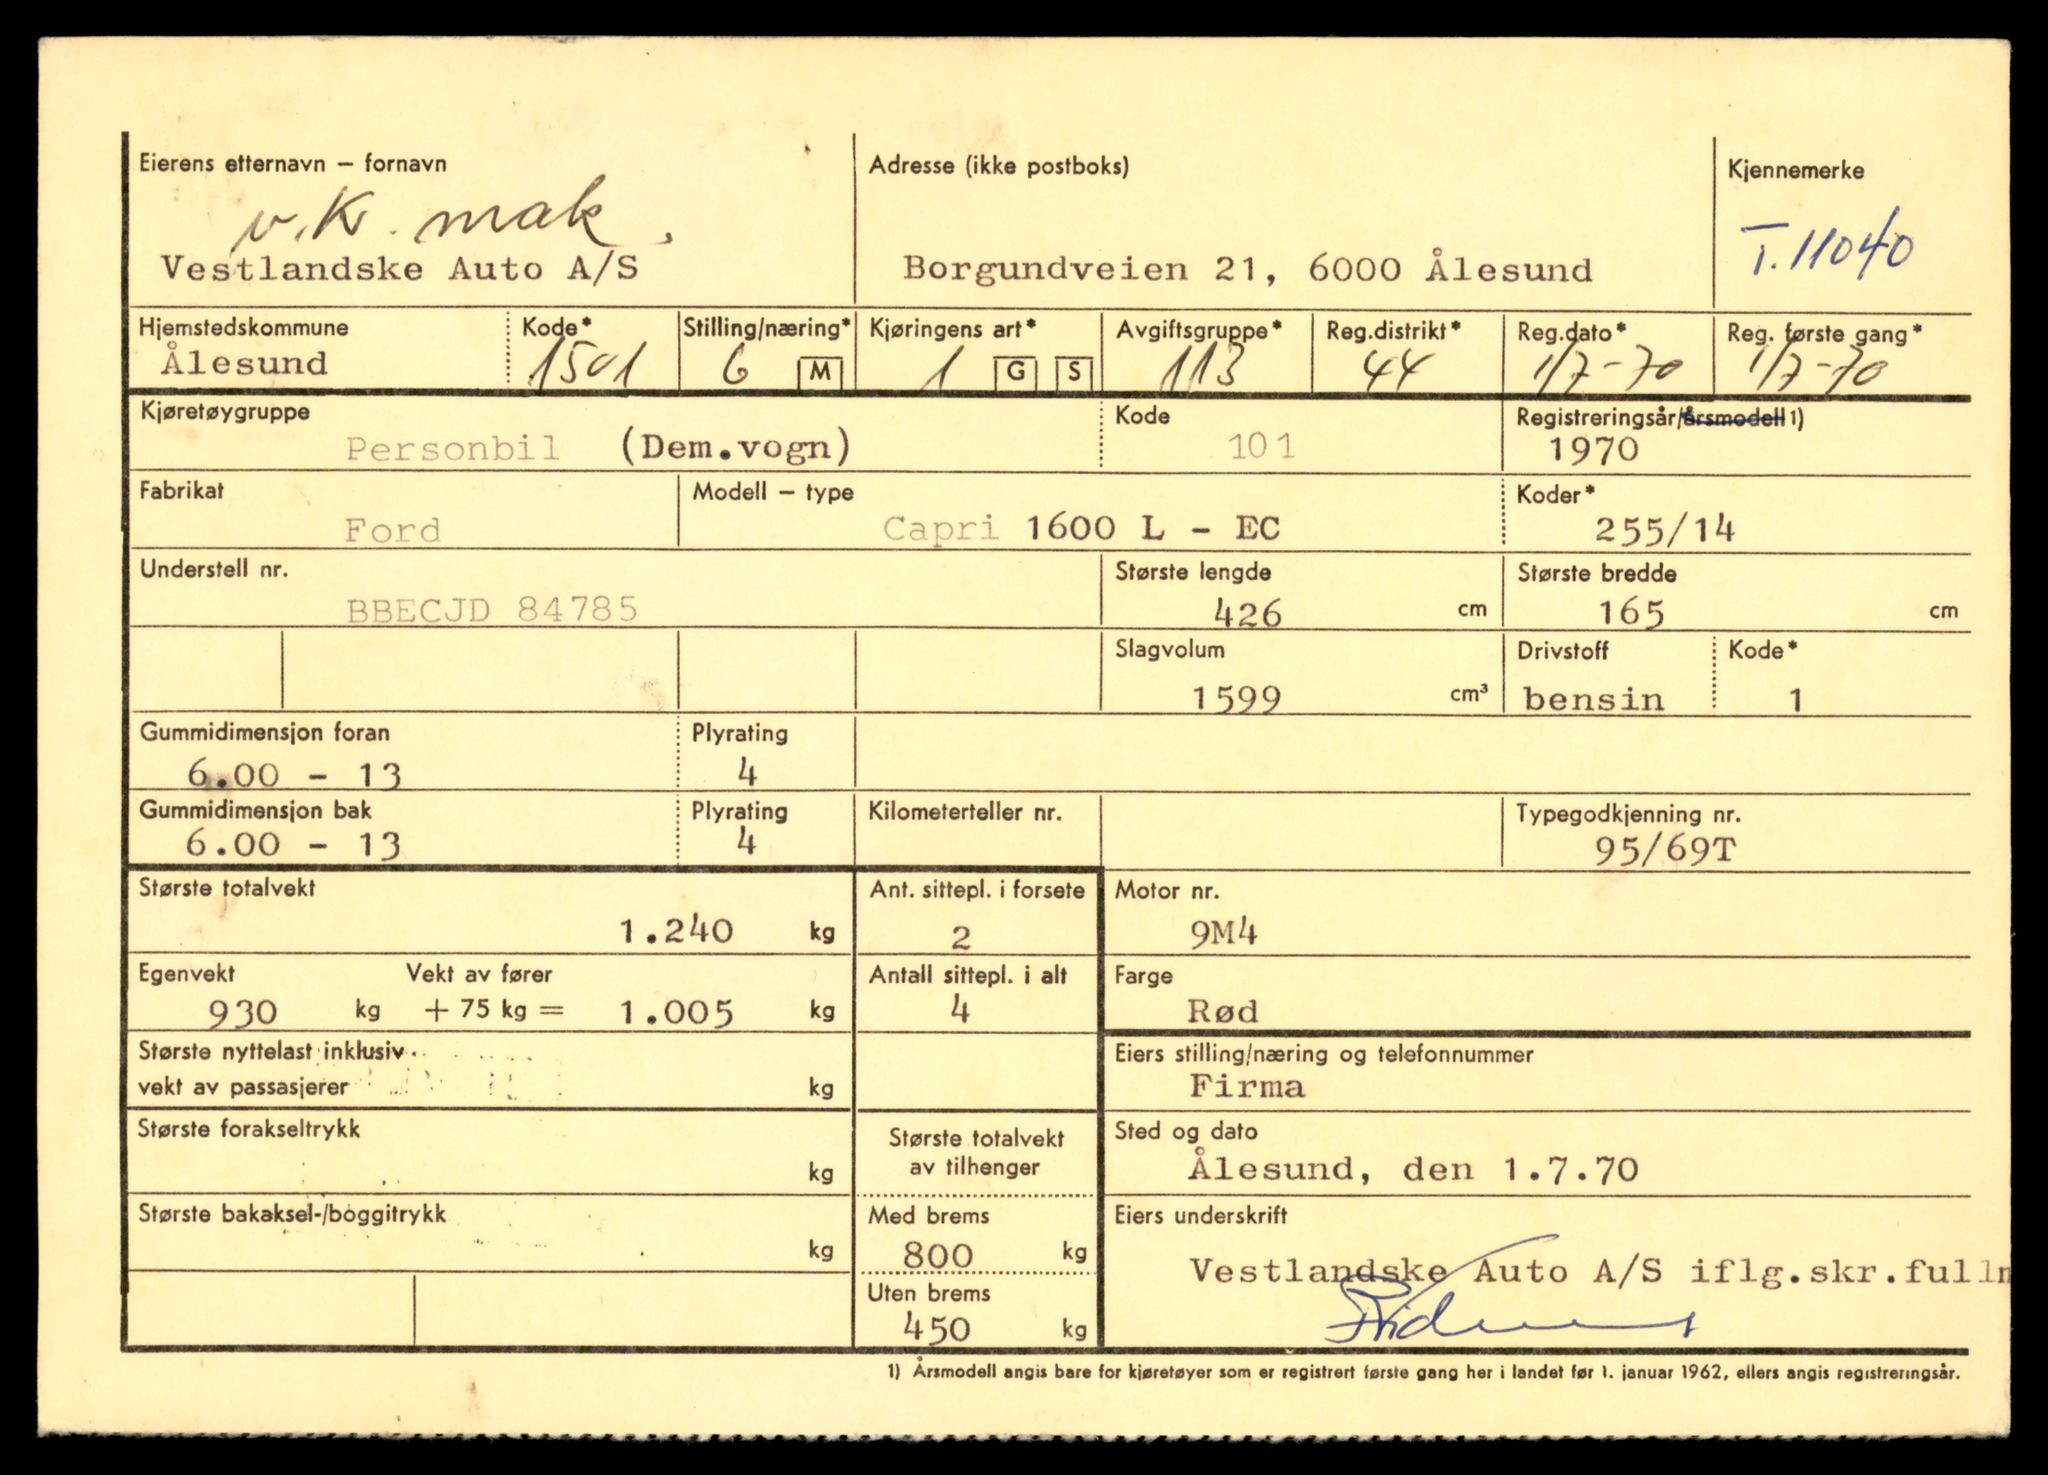 Eierens etternavn – fornavn Adresse (ikke postboks) Kjennemerke
v. Kr. mak.
Vestlandske Auto A/S Borgundveien 21, 6000 Ålesund T.11040
Hjemstedskommune Kode* Stilling/næring* Kjøringens art* Avgiftsgruppe* Reg.distrikt* Reg.dato* Reg. første gang*
Ålesund 1501 6 M 1 G S 113 44 1/7-70 1/7-70
Kjøretøygruppe Kode Registreringsår/årsmodell 1)
Personbil (Dem.vogn) 101 1970
Fabrikat Modell – type Koder*
Ford Capri 1600 L - EC 255/14
Understell nr. Største lengde Største bredde
BBECJD 84785 426 cm 165 cm
Slagvolum Drivstoff Kode*
1599 cm³ bensin 1
Gummidimensjon foran Plyrating
6.00 - 13 4
Gummidimensjon bak Plyrating Kilometerteller nr. Typegodkjenning nr.
6.00 - 13 4 95/69T
Største totalvekt Ant. sittepl. i forsete Motor nr.
1.240 kg 2 9M4
Egenvekt Vekt av fører Antall sittepl. i alt Farge
930 kg + 75 kg = 1.005 kg 4 Rød
Største nyttelast inklusiv Eiers stilling/næring og telefonnummer
vekt av passasjerer kg Firma
Største forakseltrykk Største totalvekt Sted og dato
kg av tilhenger Ålesund, den 1.7.70
Største bakaksel-/boggitrykk Med brems Eiers underskrift
kg 800 kg Vestlandske Auto A/S iflg.skr.fullm
Uten brems
450 kg
1) Årsmodell angis bare for kjøretøyer som er registrert første gang her i landet før 1. januar 1962, ellers angis registreringsår.